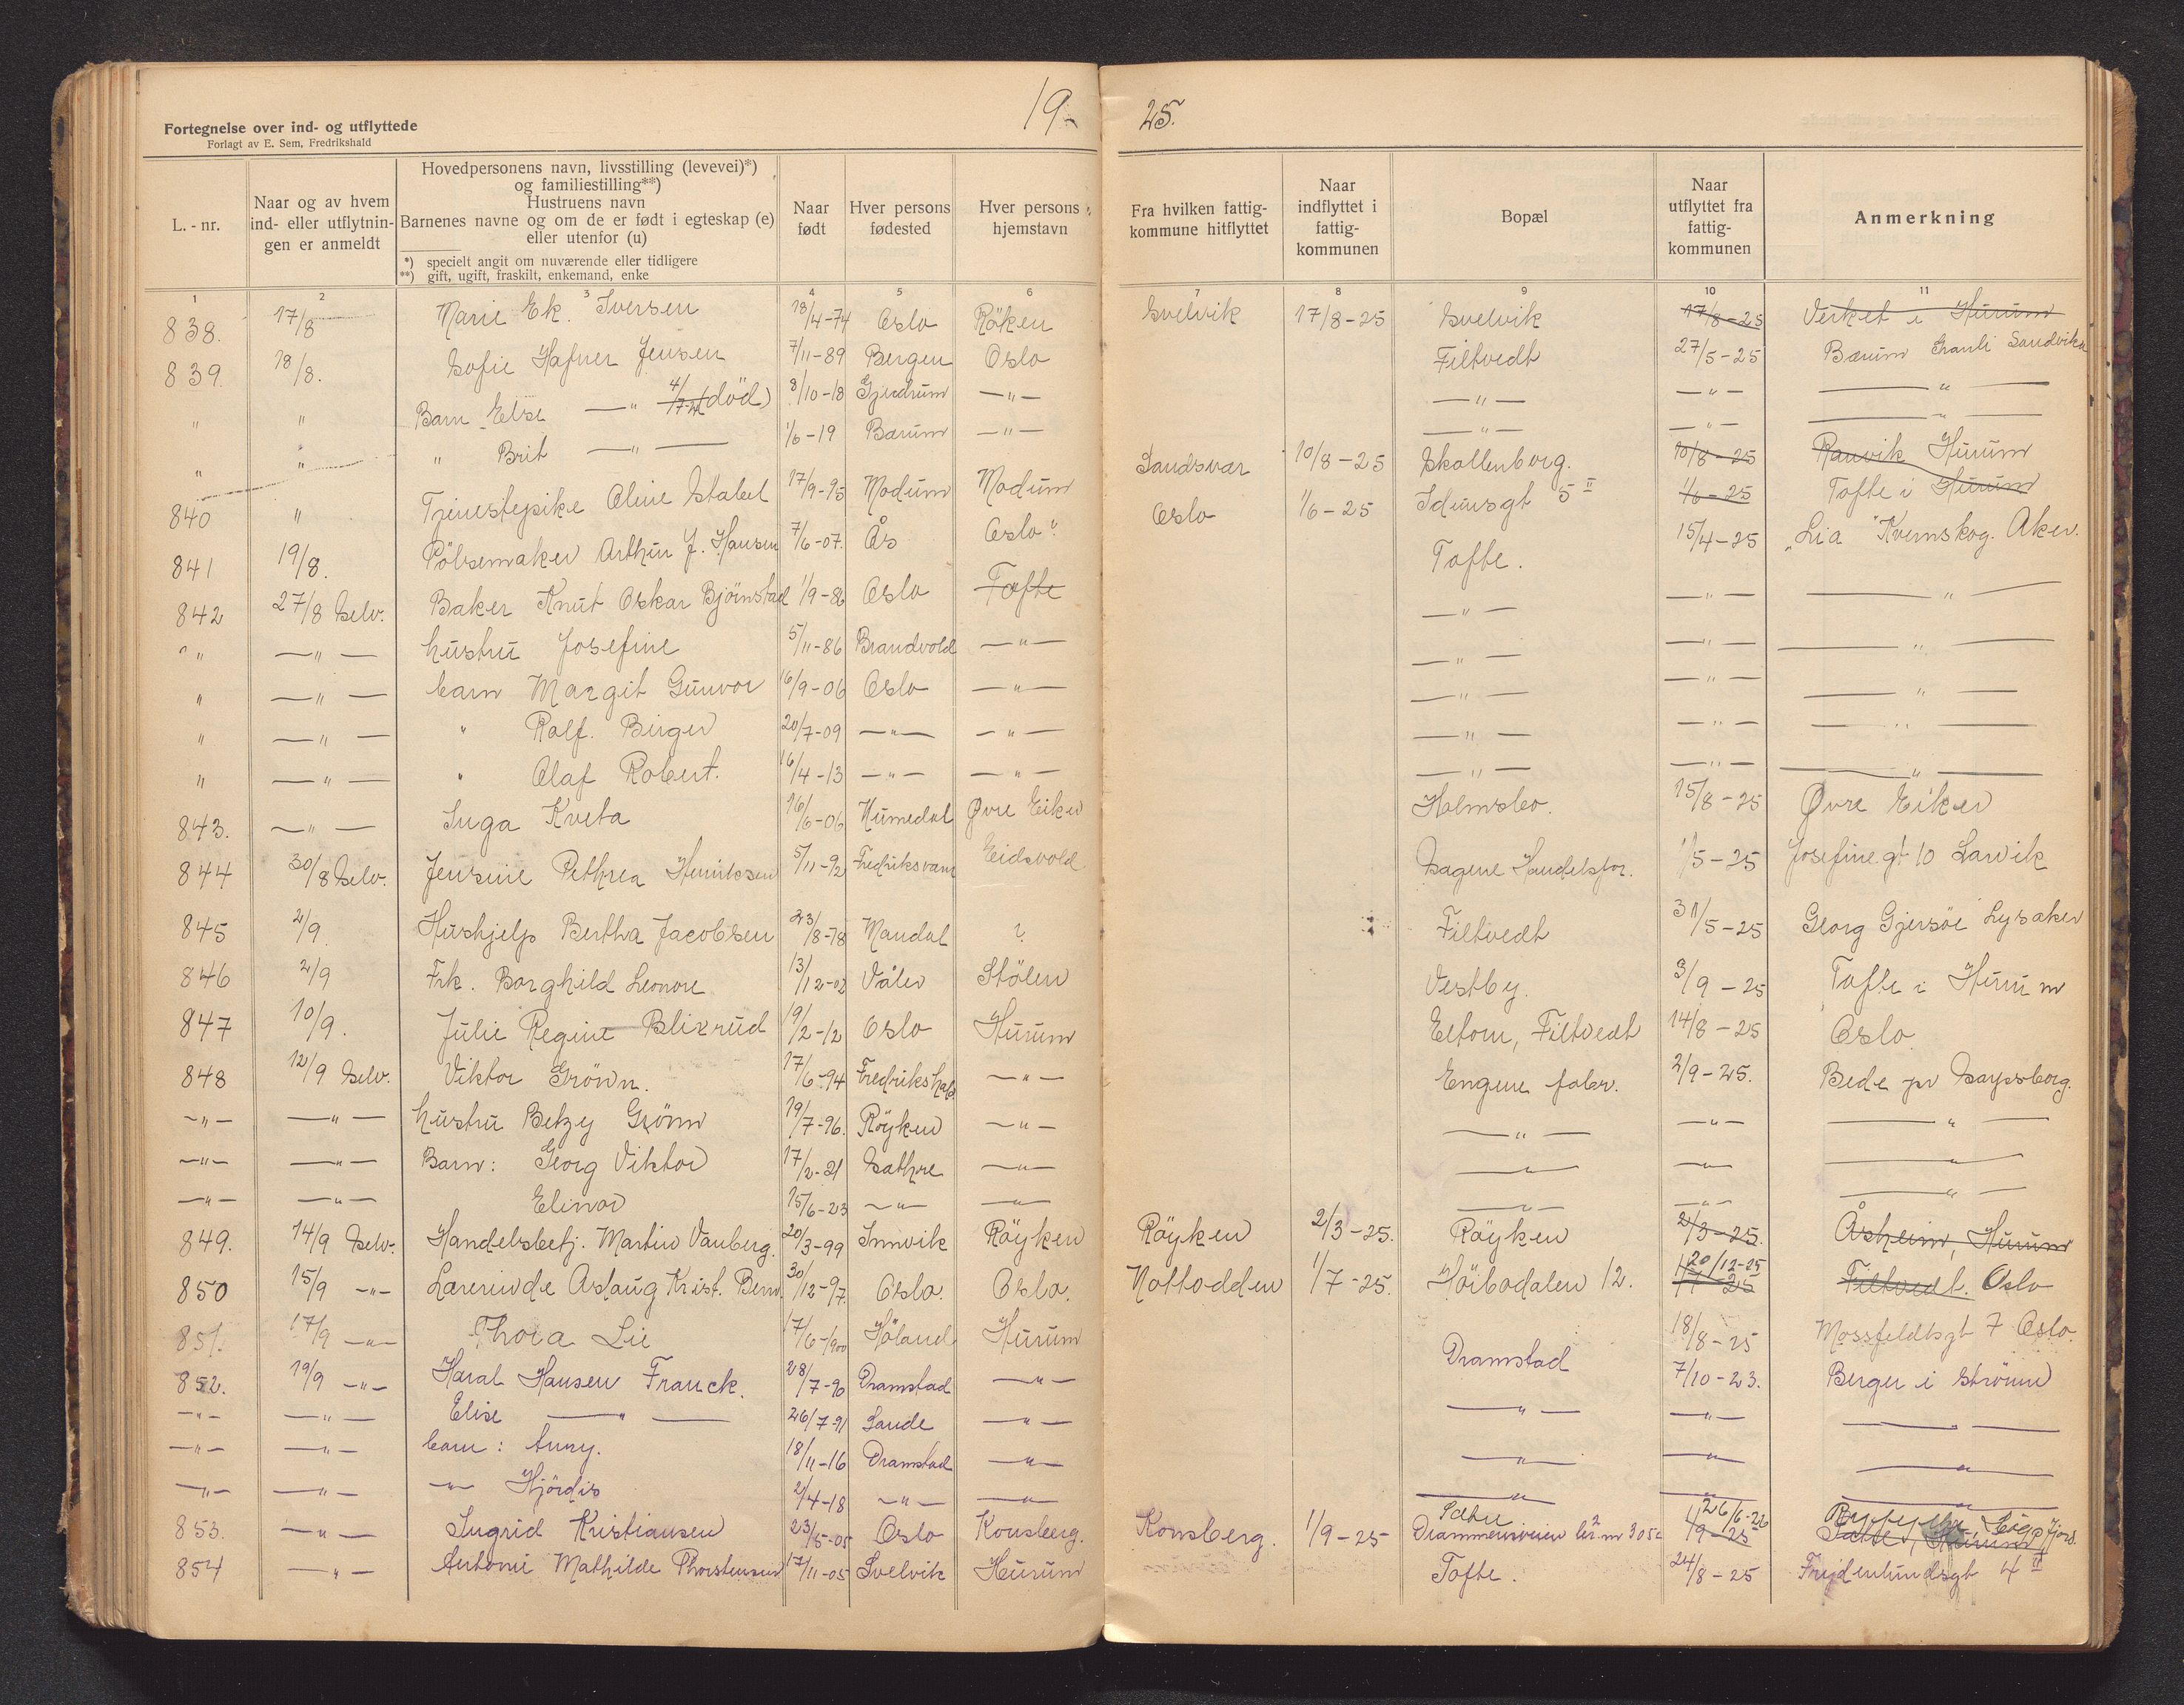 19-
25.
Fortegnelse over ind- og utflyttede
Forlagt av E. Sem, Fredrikshald
L. - nr.
Naar og av hvem ind- eller utflytningen er anmeldt
Hovedpersonens navn, livsstilling (levevei)*)
og familiestilling**)
Hustruens navn
Barnenes navne og om de er født i egteskap (e)
eller utenfor (u)
*) specielt angit om nuværende eller tidligere
**) gift, ugift, fraskilt, enkemand, enke
Naar født
Hver persons fødested
Hver persons hjemstavn
Fra hvilken fattigkommune hitflyttet
Naar indflyttet i fattigkommunen
Bopæl
Naar utflyttet fra fattigkommunen
Anmerkning
1 2 3 4 5 6 7 8 9 10 11
838. 17/8 Marie Ek. Iversen 18/4-74 Oslo Röken Svelvik 17/8-25 Svelvik 17/8-25 Verket i Hurum
839. 18/8. Sofie Hafner Jensen 7/11-89 Bergen Oslo Filtvedt 27/5-25 Bærum Granli Sandvika
" " Barn Else —"— død) 8/10-18 Gjerdrum —"— —"— —"— —"—
" " " Brit —"— 1/6-19 Bærum —"— —"— —"— —"—
840 " Tjenestepike Oline Stabel 17/9-95 Modum Modum Sandsvær 10/8-25 Skollenborg. 10/8-25 Ranvik Hurum
841 19/8. Pölsemaker Arthur J. Hansen 7/6-07. Ås Oslo". Oslo 1/6-25 Idunsgt 5 II 1/6-25 Tofte i Hurum
842 27/8 Selv. Baker Knut Oskar Björnstad 1/9-86 Oslo Tofte Tofte. 15/4-25 "Lia" Kvernskog. Aker.
" " —"— hustru Josefine 5/11-86 Brandvold —"— —"— —"— —"—
" —"— barn Margit Gunvor 16/9-06 Oslo —"— —"— —"— —"—
" —"— " Ralf. Birger 20/7-09 —"— —"— —"— —"— —"—
" —"— " Olaf Robert. 16/4-13 —"— —"— —"— —"— —"—
843. —"— Inga Kveta 16/6-06 Numedal Øvre Eiker Holmsbo. 15/8-25 Øvre Eiker
844 30/8 Selv. Jensine Pethrea Henriksen 5/11-92 Fredriksværn Eidsvold Sagene Handelsfor. 1/5-25 Josefinegt 10 Larvik
845 2/9. Hushjelp Bertha Jacobsen 23/8-78 Mandal ? Filtvedt 31/5-25 Georg Gjersöe Lysaker
846 2/9 Frk. Borghild Leonore 13/12-02 Våler Stölen Vestby. 3/9-25 Tofte i Hurum
847 10/9. Julie Regine Blixrud 19/2-12 Oslo Hurum Eltorn, Filtvedt 14/8-25 Oslo
848 12/9 Selv. Viktor Grönn. 17/6-94 Fredrikshald —"— Engene fabr. 2/9-25. Bede pr Sarpsborg.
—"— —"— hustru Betzy Grönn 19/7-96. Röyken —"— —"— —"— —"—
—"— —"— Barn: Georg Viktor 17/2-21 Sathre —"— —"— —"— —"—
—"— —"— Elinor 15/6-23 —"— —"— —"— —"— —"—
849. 14/9 Selv. Handelsbetj. Martin Vanberg. 20/3-99 Innvik Röyken Röyken 2/3-25. Röyken 2/3-25. Åsheim, Hurum
850 15/9 —"— Lærerinde Aslaug Krist. Bern. 30/12-97. Oslo. Oslo. Nottodden 1/7-25. Höibodalen 12. 20/12-25 1/7-25 Filtvedt. Oslo
851. 17/9 —"— Thora Lie 17/6-1900 Höland Hurum 18/8-25 Mossfeldtsgt 7 Oslo.
852. 19/9 —"— Haral Hansen Franck. 28/7-90 Dramstad —"— Dramstad 7/10-23. Berger i Strömm
—"— —"— Elise —"— 26/7-91 Sande —"— —"— —"— —"—
—"— —"— barn: Anny. 18/11-16 Dramstad —"— —"— —"— —"—
—"— —"— —"— Hjördis 2/4-18 —"— —"— —"— —"— —"—
853. —"— Ingrid Kristiansen 23/5-05 Oslo Konsberg. Konsberg. 1/9-25 Drammensveien 26/6-26 1/9-25
854 —"— Antonie Mathilde Thorstensen 17/11-05 Svelvik Hurum Tofte. 24/8-25 Frydenlundsgt 4 II